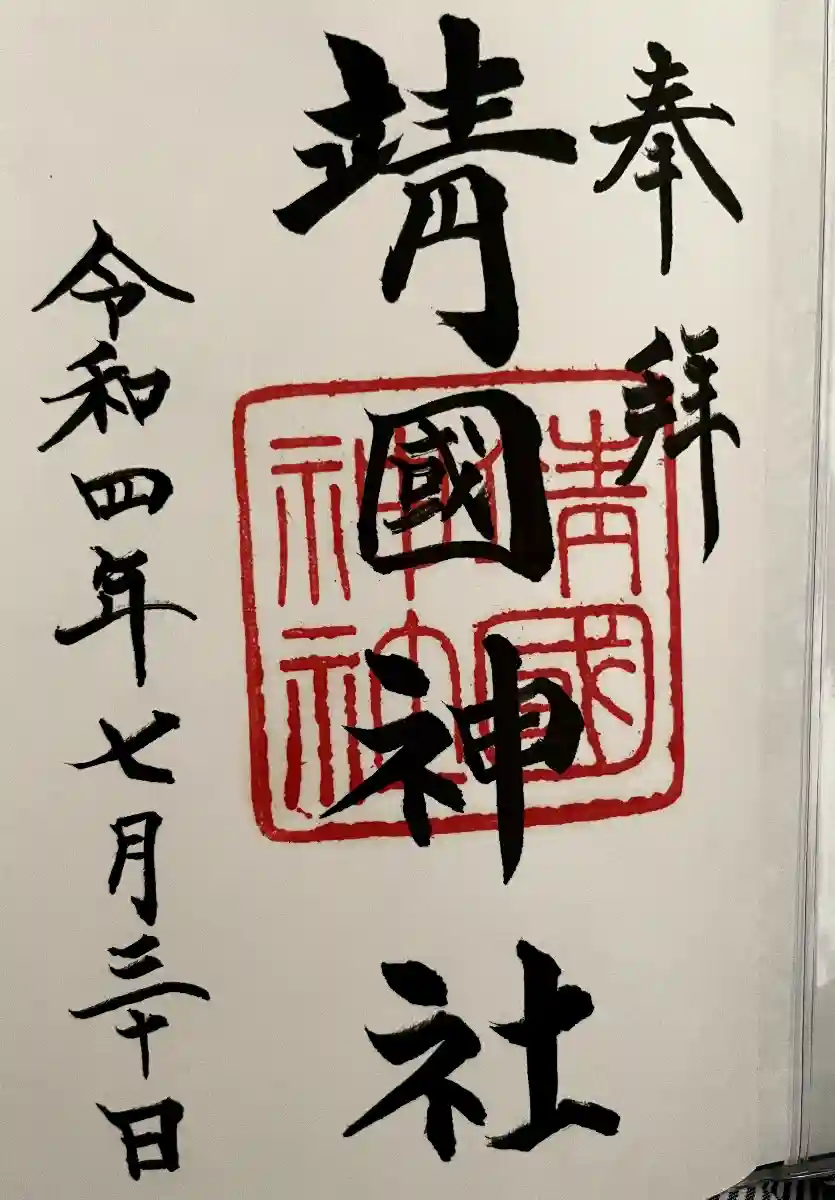 奉拝
靖國神社
靖國神社
令和四年七月三十日